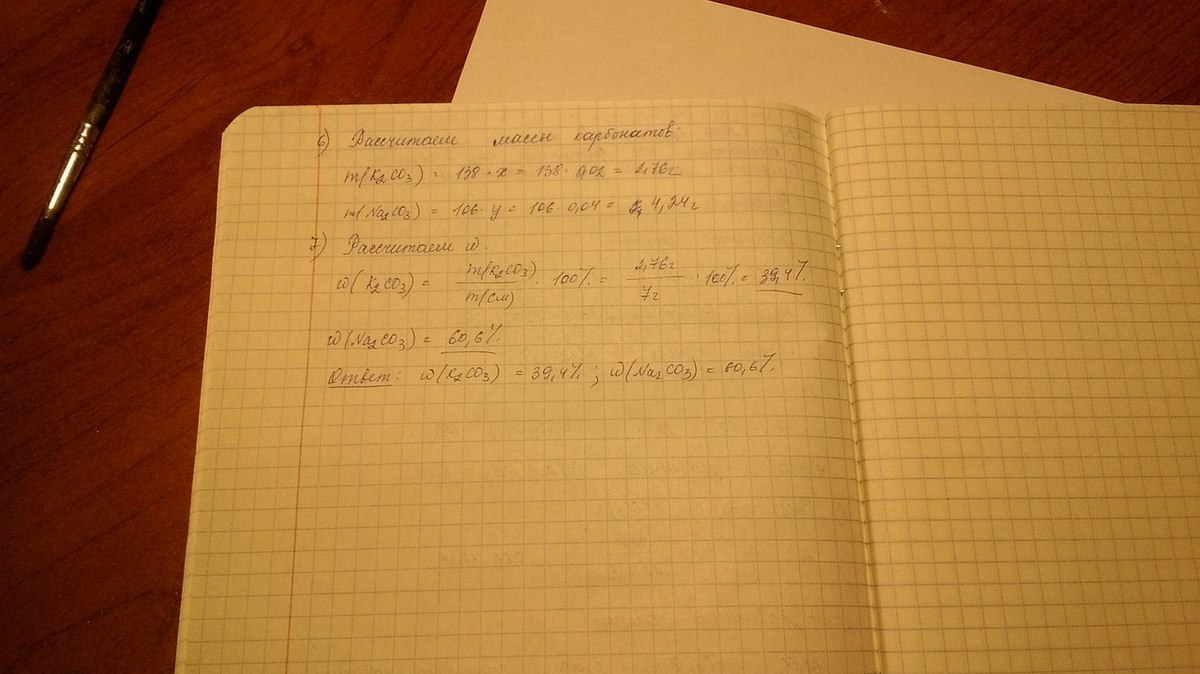 6) Рассчитаем массы карбонатов:
m(K₂CO₃) = 138 · x = 138 · 0,02 = 2,76г
m(Na₂CO₃) = 106 · y = 106 · 0,04 = 4,24г
7) Рассчитаем w.
w(K₂CO₃) = m(K₂CO₃)/m(см) · 100% = 2,76г/7г · 100% = 39,4%.
w(Na₂CO₃) = 60,6%.
Ответ: w(K₂CO₃) = 39,4%; w(Na₂CO₃) = 60,6%.